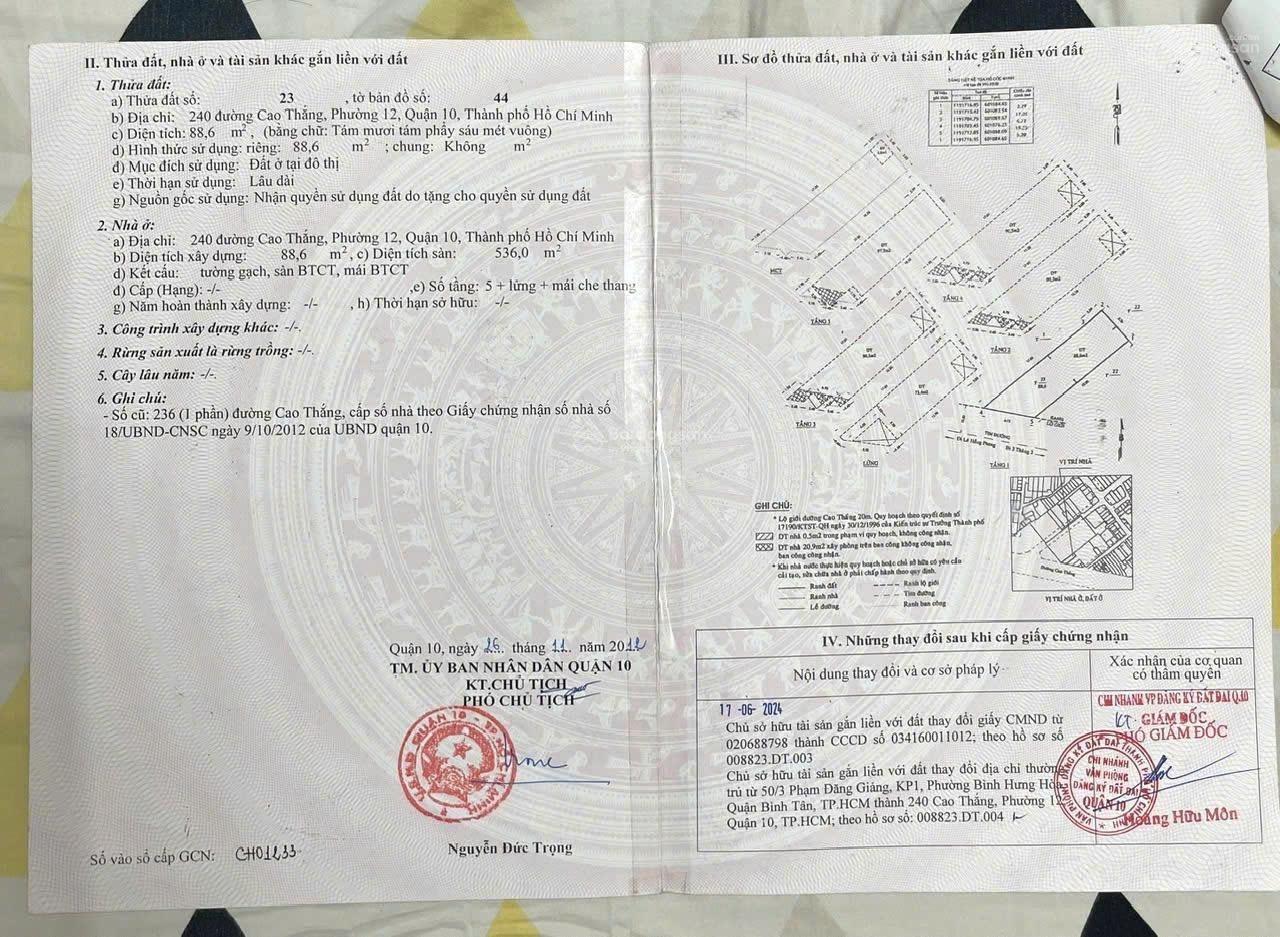 II. Thửa đất, nhà ở và tài sản khác gắn liền với đất
1. Thửa đất:
a) Thửa đất số: 23 , tờ bản đồ số: 44
b) Địa chỉ: 240 đường Cao Thắng, Phường 12, Quận 10, Thành phố Hồ Chí Minh
c) Diện tích: 88,6 m², (bằng chữ: Tám mươi tám phẩy sáu mét vuông)
d) Hình thức sử dụng: riêng: 88,6 m² ; chung: Không m²
đ) Mục đích sử dụng: Đất ở tại đô thị
e) Thời hạn sử dụng: Lâu dài
g) Nguồn gốc sử dụng: Nhận quyền sử dụng đất do tặng cho quyền sử dụng đất
2. Nhà ở:
a) Địa chỉ: 240 đường Cao Thắng, Phường 12, Quận 10, Thành phố Hồ Chí Minh
b) Diện tích xây dựng: 88,6 m², c) Diện tích sàn: 536,0 m²
d) Kết cấu: tường gạch, sàn BTCT, mái BTCT
đ) Cấp (Hạng): -/- ,e) Số tầng: 5 + lửng + mái che thang
g) Năm hoàn thành xây dựng: -/- , h) Thời hạn sở hữu: -/-
3. Công trình xây dựng khác: -/-.
4. Rừng sản xuất là rừng trồng: -/-.
5. Cây lâu năm: -/-.
6. Ghi chú:
- Số cũ: 236 (1 phần) đường Cao Thắng, cấp số nhà theo Giấy chứng nhận số nhà số
18/UBND-CNSC ngày 9/10/2012 của UBND quận 10.
Quận 10, ngày 26 tháng 11 năm 2012
TM. ỦY BAN NHÂN DÂN QUẬN 10
KT.CHỦ TỊCH
PHÓ CHỦ TỊCH
Nguyễn Đức Trọng
Số vào sổ cấp GCN: CH01233
III. Sơ đồ thửa đất, nhà ở và tài sản khác gắn liền với đất
MCT
TẦNG 5
TẦNG 4
TẦNG 2
TẦNG 3
LỬNG
TẦNG 1
TIM ĐƯỜNG
Đi Lê Hồng Phong Đi 3 Tháng 2
VỊ TRÍ NHÀ
Đường Cao Thắng
VỊ TRÍ NHÀ Ở, ĐẤT Ở
GHI CHÚ:
* Lộ giới đường Cao Thắng 20m. Quy hoạch theo quyết định số
17190/KTST-QH ngày 30/12/1996 của Kiến trúc sư Trưởng Thành phố
DT nhà 0,5m2 trong phạm vi quy hoạch, không công nhận.
DT nhà 20,9m2 xây phòng trên ban công không công nhận,
ban công công nhận.
* Khi nhà nước thực hiện quy hoạch hoặc chủ sở hữu có yêu cầu
cải tạo, sửa chữa nhà ở phải chấp hành theo quy định.
Ranh đất Ranh lộ giới
Ranh nhà Tim đường
Lề đường Ranh ban công
IV. Những thay đổi sau khi cấp giấy chứng nhận
Nội dung thay đổi và cơ sở pháp lý
Xác nhận của cơ quan
có thẩm quyền
17 -06- 2024
Chủ sở hữu tài sản gắn liền với đất thay đổi giấy CMND từ
020688798 thành CCCD số 034160011012; theo hồ sơ số
008823.DT.003
Chủ sở hữu tài sản gắn liền với đất thay đổi địa chỉ thường
trú từ 50/3 Phạm Đăng Giảng, KP1, Phường Bình Hưng Hòa
Quận Bình Tân, TP.HCM thành 240 Cao Thắng, Phường 12
Quận 10, TP.HCM; theo hồ sơ số: 008823.DT.004
CHI NHÁNH VP ĐĂNG KÝ ĐẤT ĐAI Q.10
KT. GIÁM ĐỐC
PHÓ GIÁM ĐỐC
CHI NHÁNH
VĂN PHÒNG
ĐĂNG KÝ ĐẤT ĐAI
QUẬN 10
Hoàng Hữu Môn